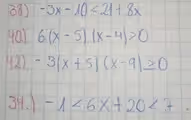 38) -3x - 10 < 21 + 8x
40) 6(x - 5)(x - 4) > 0
42) - 3(x + 5)(x - 9) ≥ 0
34.) - 1 < 6x + 20 < 7.